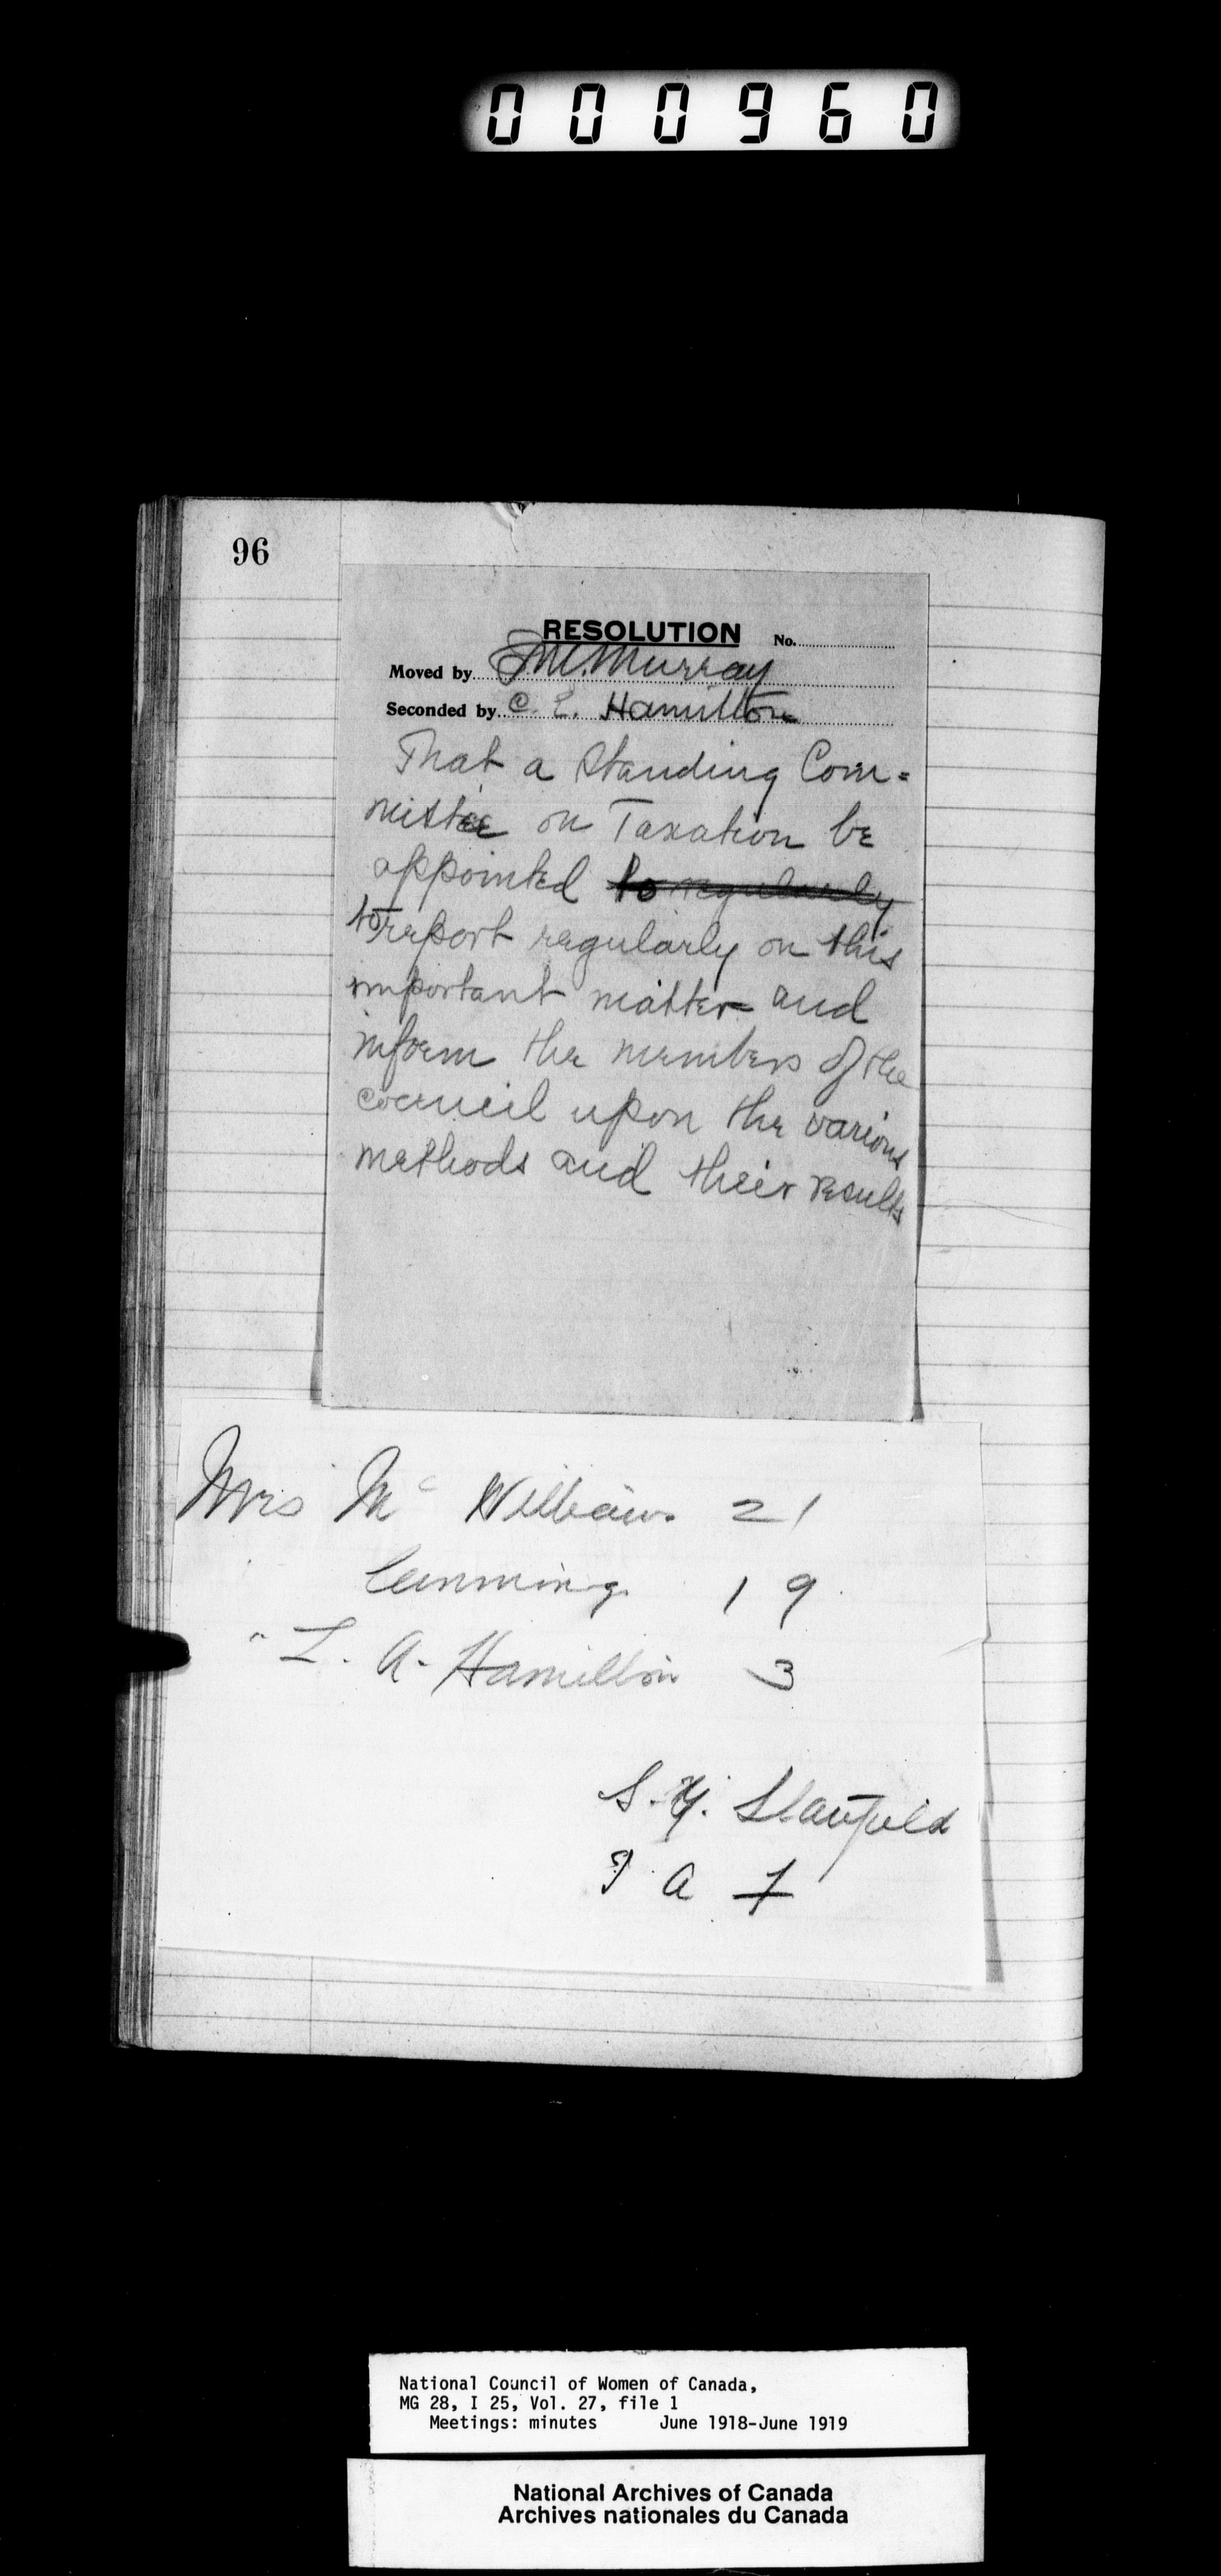 000960
96
RESOLUTION No.
Moved by J M. Murray
Seconded by C. E. Hamilton
That a Standing Com=
mittee on Taxation be
appointed to regularly
to report regularly on this
important matter and
inform the members of the
council upon the various
methods and their results
Mrs Mc Williams 21
Cummings 19
" L. A. Hamilton 3
S. Y. Stanfield
National Council of Women of Canada,
MG 28, I 25, Vol. 27, file 1
Meetings: minutes June 1918-June 1919
National Archives of Canada
Archives nationales du Canada